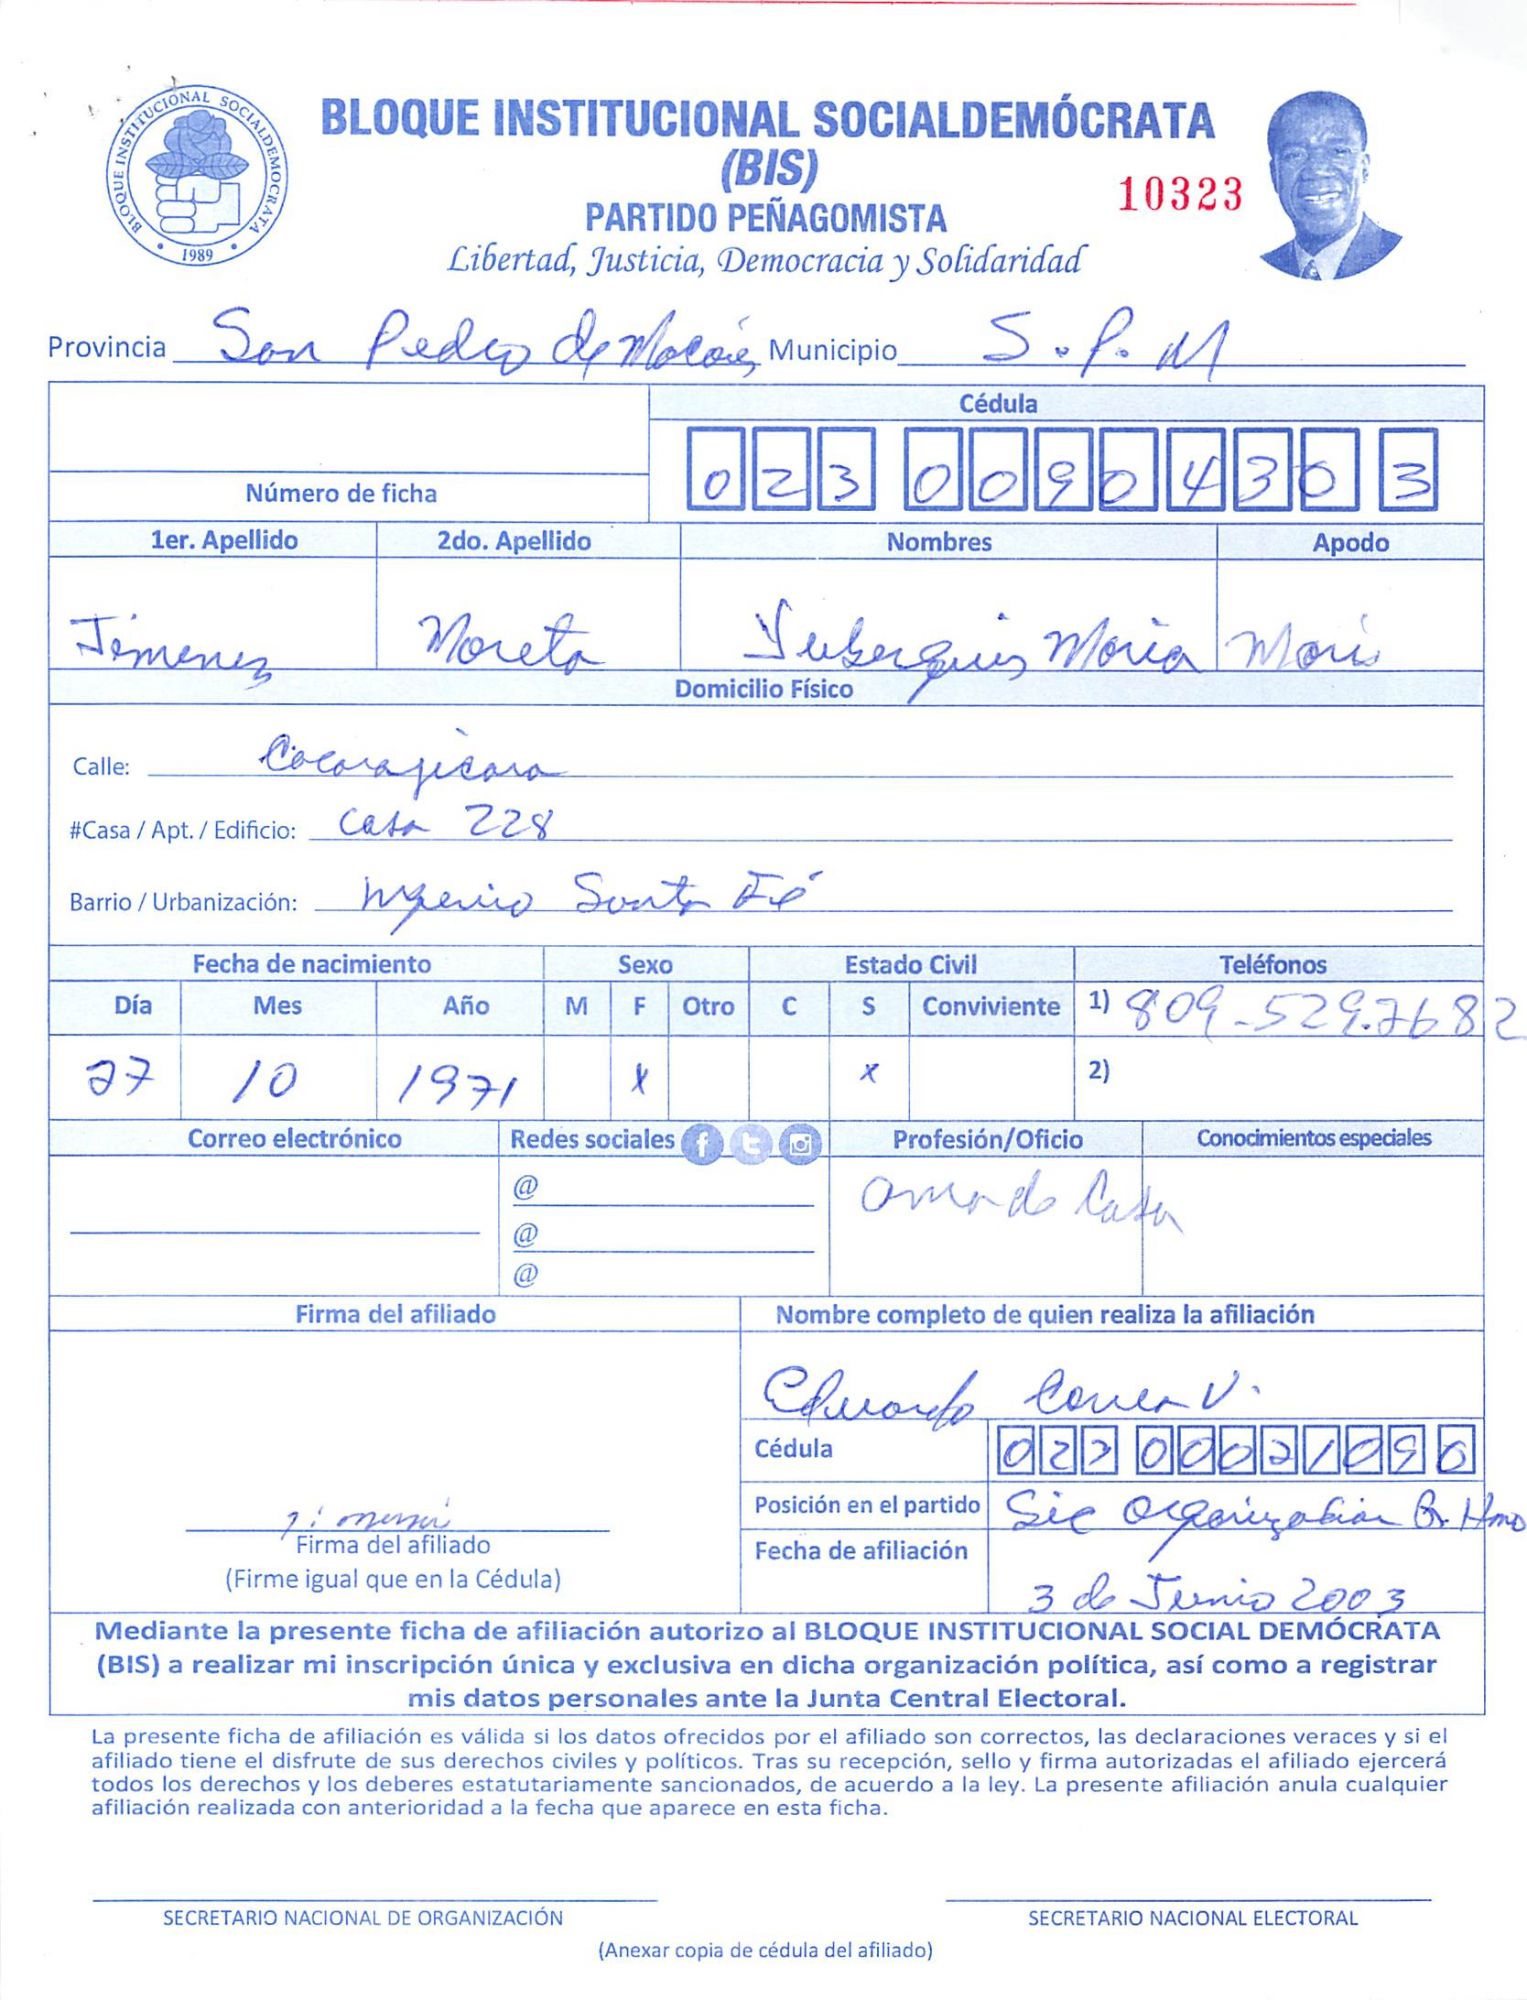 BLOQUE INSTITUCIONAL SOCIALDEMOCRATA
1989
BLOQUE INSTITUCIONAL SOCIALDEMÓCRATA
(BIS)
10323
PARTIDO PEÑAGOMISTA
Libertad, Justicia, Democracia y Solidaridad
Provincia San Pedro de Macorís Municipio S.P.M
Cédula
023 0090430 3
Número de ficha
1er. Apellido 2do. Apellido Nombres Apodo
Jimenez Moreta Maria
Domicilio Físico
Calle:
#Casa / Apt. / Edificio: Casa 228
Barrio / Urbanización: Santa Fé
Fecha de nacimiento Sexo Estado Civil Teléfonos
Día Mes Año M F Otro C S Conviviente 1) 809-529-7682
27 10 1971 x x 2)
Correo electrónico Redes sociales Profesión/Oficio Conocimientos especiales
@ ama de Casa
@
@
Firma del afiliado Nombre completo de quien realiza la afiliación
Eduardo Correa V.
Cédula 027 0002109 0
Posición en el partido Sec Organización
Firma del afiliado
(Firme igual que en la Cédula)
Fecha de afiliación
3 de Junio 2003
Mediante la presente ficha de afiliación autorizo al BLOQUE INSTITUCIONAL SOCIAL DEMÓCRATA
(BIS) a realizar mi inscripción única y exclusiva en dicha organización política, así como a registrar
mis datos personales ante la Junta Central Electoral.
La presente ficha de afiliación es válida si los datos ofrecidos por el afiliado son correctos, las declaraciones veraces y si el
afiliado tiene el disfrute de sus derechos civiles y políticos. Tras su recepción, sello y firma autorizadas el afiliado ejercerá
todos los derechos y los deberes estatutariamente sancionados, de acuerdo a la ley. La presente afiliación anula cualquier
afiliación realizada con anterioridad a la fecha que aparece en esta ficha.
SECRETARIO NACIONAL DE ORGANIZACIÓN SECRETARIO NACIONAL ELECTORAL
(Anexar copia de cédula del afiliado)